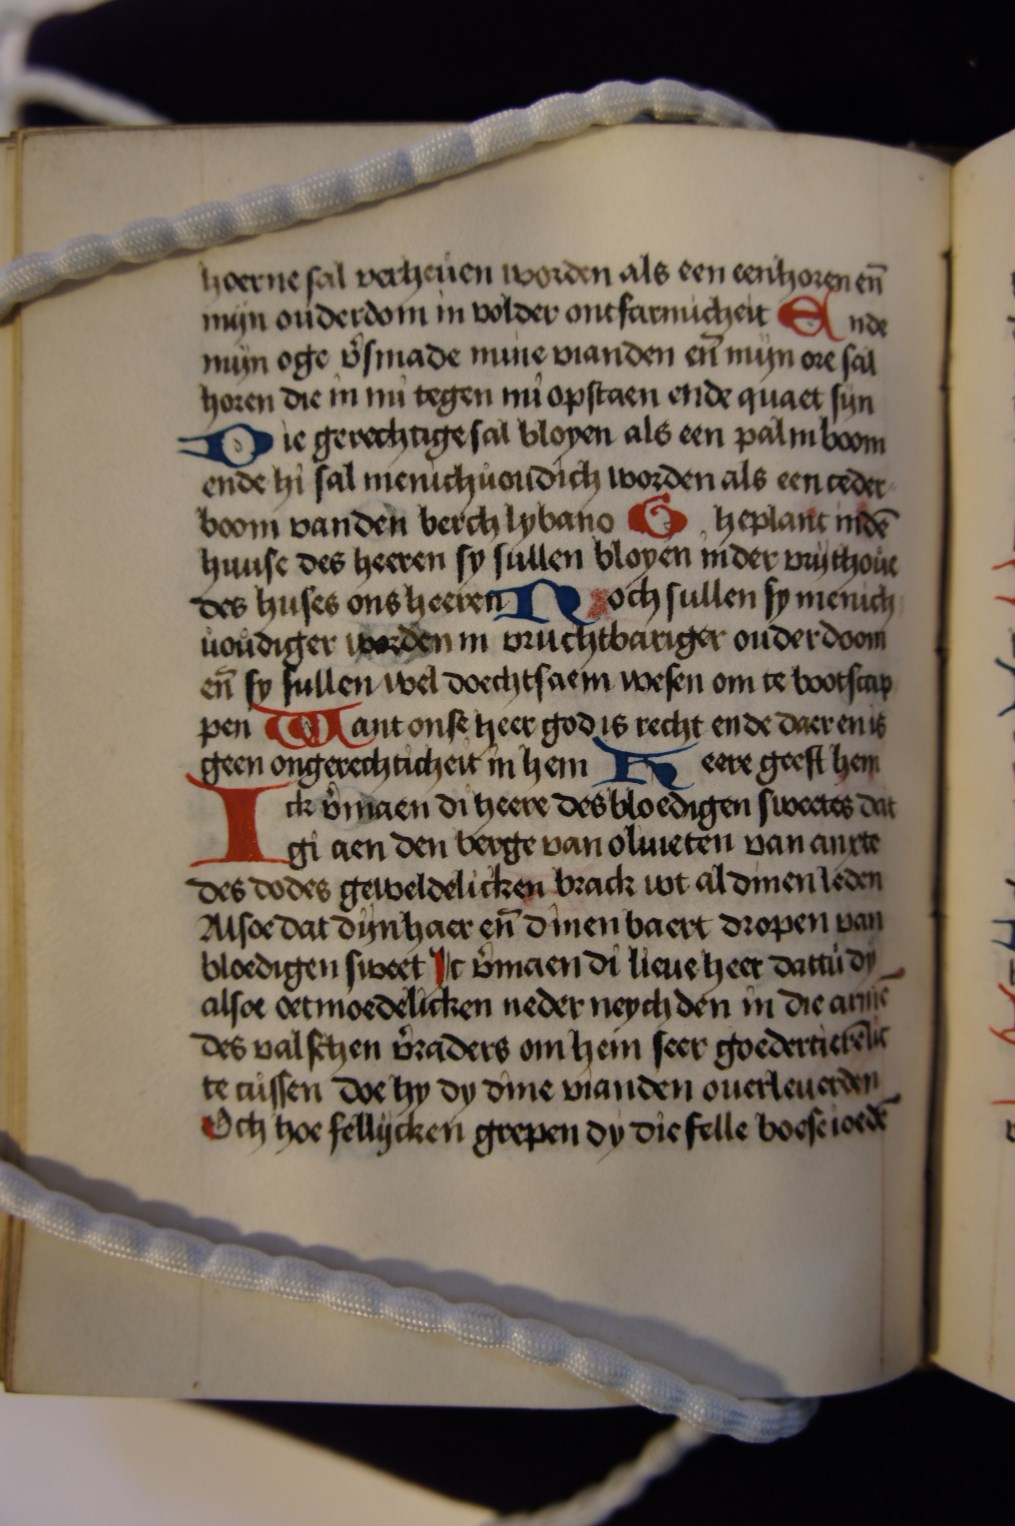 hoerne sal verheuen worden als een eenhoren en̄
mijn ouderdom in volder ontfarmicheit Ende
mijn oge v̓smade mine vianden en̄ mijn ore sal
horen die in mi tegen mi opstaen ende quaet sijn
Die gerechtige sal bloyen als een palmboom
ende hi sal menichuoudich worden als een ceder
boom vanden berch lybano Gheplant indē
huuse des heeren sy sullen bloyen inder vrijthoue
des huses ons heeren Noch sullen sy menich
uoudiger worden in vruchtbariger ouderdoom
en̄ sy sullen wel doechtsaem wesen om te bootscap
pen Want onse heer god is recht ende daer en is
geen ongerechticheit in hem Heere geeft hem
Ick v̓maen di heere des bloedigen sweetes dat
gi aen den berge van oliueten van anxte
des dodes geweldelicken brack wt al dinen leden
Alsoe dat dijn haer en̄ dinen baert dropen van
bloedigen sweet Ic v̓maen di lieue heer dattu dy
alsoe oetmoedelicken neder neychden in die arme
des valschen v̓raders om hem seer goedertierēlic
te cussen doe hy dy dine vianden ouerleuerden
Och hoe fellijcken grepen dy die felle boese ioedē